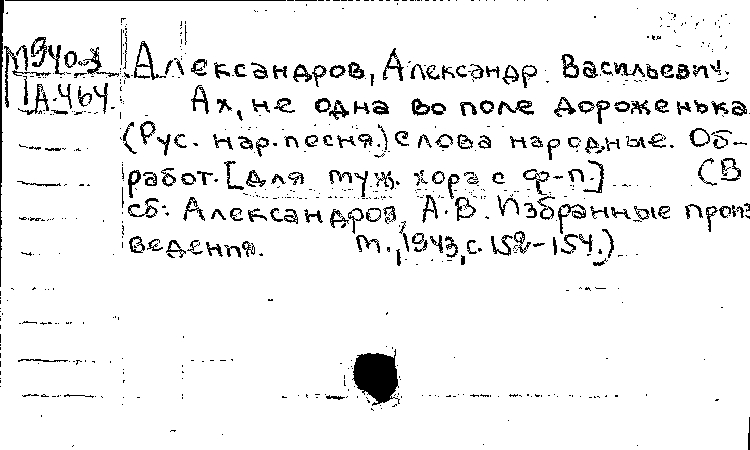 М940.3
А-464
Александров, Александр Васильевич.
Ах, не одна во поле дороженька
(Рус. нар. песня.) слова народные. Об-
работ. [для муж. хора с ф-п.] (В
сб: Александров, А.В. Избранные произ
ведения. М., 1943, с. 152-154.)